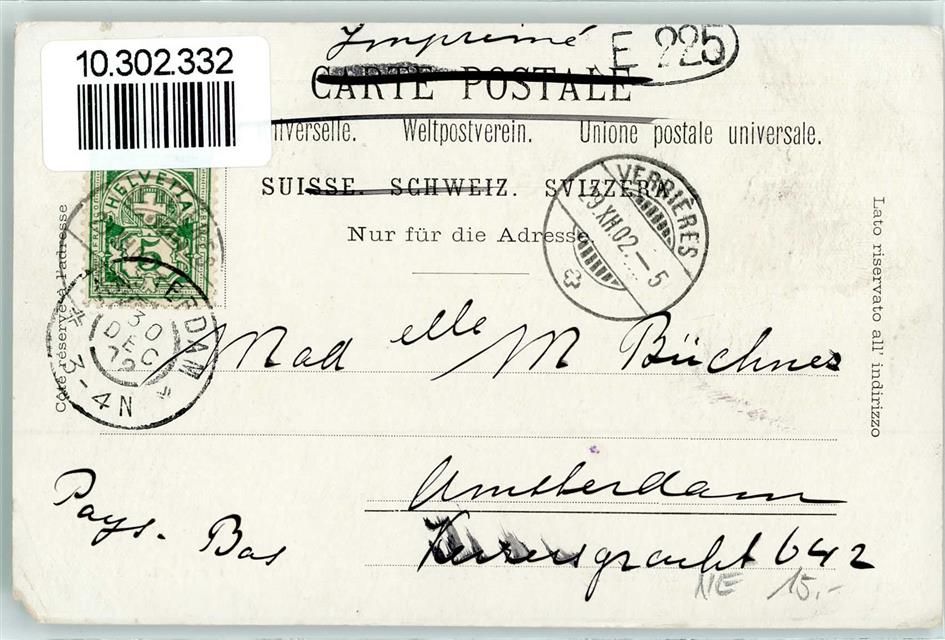 10.302.332
Imprimé
E 225
CARTE POSTALE
niverselle. Weltpostverein. Unione postale universale.
SUISSE. SCHWEIZ. SVIZZERA
Nur für die Adresse
VERRIÈRES
29.XII.02.-5
HELVETIA
5
Côté réservé à l'adresse
Lato riservato all' indirizzo
TERDAM
30
DEC
3-4N
Mad elle M Büchner
Amsterdam
Pays. Bas
Keizersgracht 642
NE 15.-